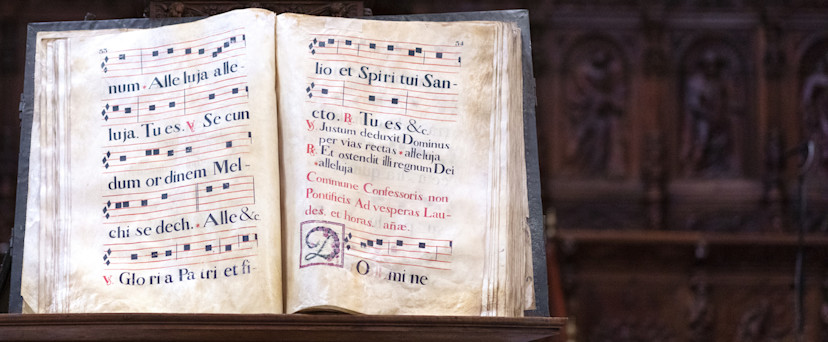 53
num. Alle luja alle-
luja. Tu es. ℣ Se cun
dum or dinem Mel-
chi se dech. Alle &c
℣ Glo ri a Pa tri et fi-
54
lio et Spi ri tui San-
cto. ℟ Tu es &c
℣ Justum deduxit Dominus
per vias rectas alleluja
℟ Et ostendit illi regnum Dei
alleluja
Commune Confessoris non
Pontificis Ad vesperas Lau-
des, et horas. añæ.
DO mi ne